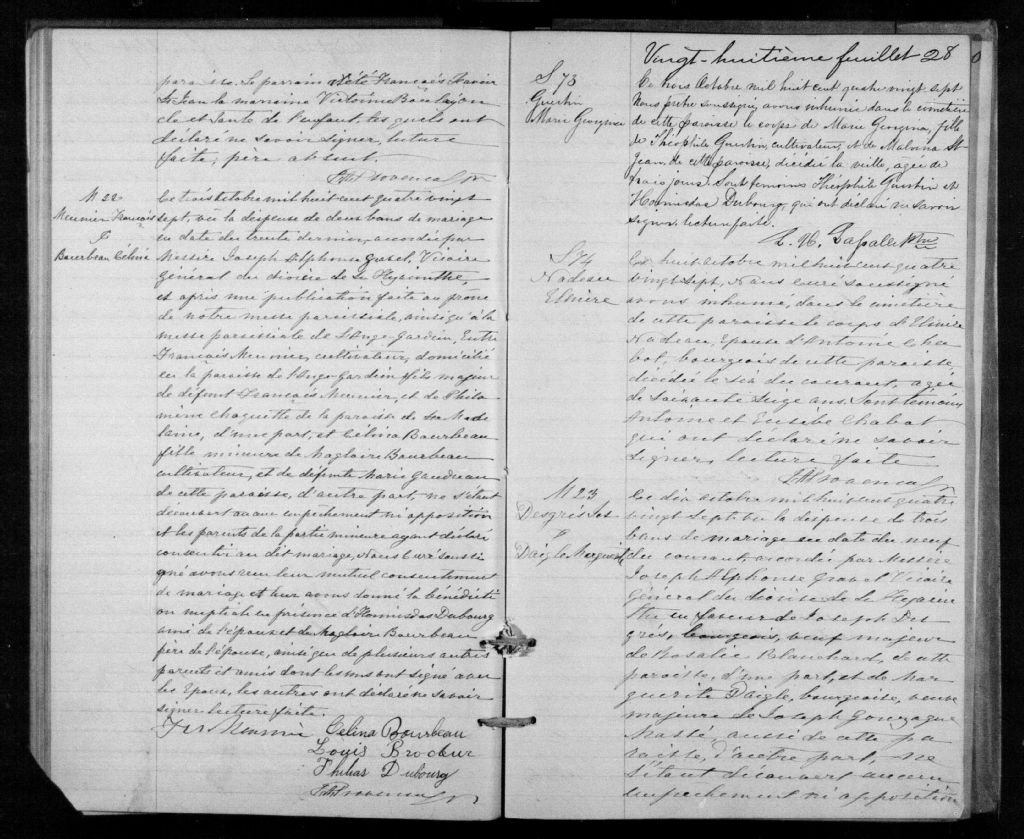 paroisse. Le parrain a été François Xavier
St Jean la marraine Victorine
cle et tante de l'enfant, lesquels ont
déclaré ne savoir signer, lecture
faite, père absent.
M 22
Meunier François
&
Bourbeau Célina
Le trois octobre mil huit cent quatre vingt
sept, vu la dispense de deux bans de mariage
en date du trente dernier, accordée par
Messire Joseph Alphonse Gravel, Vicaire
général du diocèse de St Hyacinthe,
et après une publication faite au prône
de notre messe paroissiale, ainsi qu'à la
messe paroissiale de l'Ange-Gardien, Entre
François Meunier, cultivateur, domicilié
en la paroisse de l'Ange Gardien fils majeur
de défunt François Meunier, et de Philo
mène Choquette de la paroisse de Ste Made
laine, d'une part, et Célina Bourbeau
fille mineure de Magloire Bourbeau
cultivateur, et de défunte Marie Gaudreau
de cette paroisse, d'autre part, ne s'étant
découvert aucun empêchement ni opposition
et les parents de la partie mineure ayant déclaré
consentir au dit mariage, Nous Curé soussi
gné avons reçu leur mutuel consentement
de mariage et leur avons donné la bénédicti
on nuptiale en présence d'Hormisdas Dubourg
ami de l'époux et de Magloire Bourbeau
père de l'épouse, ainsi que de plusieurs autres
parents et amis dont les uns ont signé avec
les Epoux, les autres ont déclaré ne savoir
signer lecture faite.
Meunier Celina Bourbeau
Louis Brodeur
Philias Dubourg
Vingt-huitième feuillet 28
S 73
Guertin
Marie Georgina
Ce trois Octobre mil huit cent quatre vingt sept
Nous prêtre soussigné, avons inhumé dans le cimetière
de cette paroisse le corps de Marie Georgina, fille
de Théophile Guertin, cultivateur, et de Malvina St
Jean, de cette paroisse, décédée la veille, agée de
trois jours. Sont temoins Théophile Guertin et
Hormisdas Dubourg, qui ont déclaré ne savoir
signer. lecture faite.
Lasalle Ptre
S 74
Nadeau
Elmire
Le huit octobre mil huit cent quatre
vingt sept, Nous curé soussigné
avons inhumé, dans le cimetière
de cette paroisse le corps d'Elmire
Nadeau, Epouse d'Antoine Cha
bot, bourgeois de cette paroisse
décédée le six du courant, agée
de Soixante Seize ans. Sont témoins
Antoine et Eusèbe Chabot
qui ont déclaré ne savoir
signer, lecture faite
M 23
Desgrés Jos
&
Daigle Marguerite
Le dix octobre mil huit cent quatre
vingt sept vu la dispense de trois
bans de mariage en date du neuf
du courant, accordée par Messire
Joseph Alphonse Gravel Vicaire
Général du diocèse de St Hyacin
the en faveur de Joseph Des
grés, bourgeois, veuf majeur
de Rosalie Blanchard, de cette
paroisse, d'une part, et de Mar
guerite Daigle, bourgeoise, veuve
majeure de Joseph Gonzague
Massé, aussi de cette pa
roisse, d'autre part, ne
s'étant découvert aucun
empêchement ni opposition